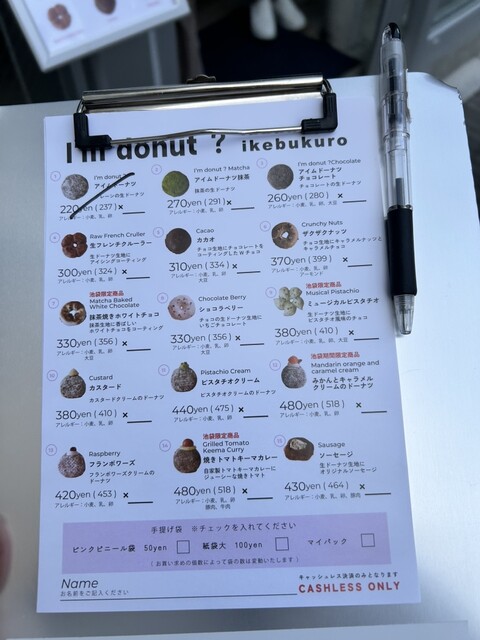 I'm donut ? ikebukuro
I'm donut ?
アイムドーナツ
プレーンの生ドーナツ
220yen ( 237 ) ×
アレルギー：小麦、乳、卵
I'm donut ? Matcha
アイムドーナツ抹茶
抹茶の生ドーナツ
270yen ( 291 ) ×
アレルギー：小麦、乳、卵
I'm donut ?Chocolate
アイムドーナツ
チョコレート
チョコレートの生ドーナツ
260yen ( 280 ) ×
アレルギー：小麦、乳、卵、大豆
Raw French Cruller
生フレンチクルーラー
生ドーナツ生地に
アイシングコーティング
300yen ( 324 ) ×
アレルギー：小麦、乳、卵
Cacao
カカオ
チョコ生地にチョコレートを
コーティングしたWチョコ
310yen ( 334 ) ×
アレルギー：小麦、乳、卵
大豆
Crunchy Nuts
ザクザクナッツ
チョコ生地にキャラメルナッツと
キャラメルチョコ
370yen ( 399 ) ×
アレルギー：小麦、乳、卵
アーモンド
池袋限定商品
Matcha Baked
White Chocolate
抹茶焼きホワイトチョコ
抹茶生地に香ばしい
ホワイトチョコをコーティング
330yen ( 356 ) ×
アレルギー：小麦、乳、卵
大豆
Chocolate Berry
ショコラベリー
チョコの生ドーナツ生地に
いちごチョコレート
330yen ( 356 ) ×
アレルギー：小麦、乳、卵
大豆
池袋限定商品
Musical Pistachio
ミュージカルピスタチオ
生ドーナツ生地に
ピスタチオ風味のチョコ
380yen ( 410 ) ×
アレルギー：小麦、乳、卵、大豆
10
Custard
カスタード
カスタードクリームのドーナツ
380yen ( 410 ) ×
アレルギー：小麦、乳、卵
11
Pistachio Cream
ピスタチオクリーム
ピスタチオクリームのドーナツ
440yen ( 475 ) ×
アレルギー：小麦、乳、卵
12
池袋期間限定商品
Mandarin orange and
caramel cream
みかんとキャラメル
クリームのドーナツ
480yen ( 518 ) ×
アレルギー：小麦、乳、卵
13
Raspberry
フランボワーズ
フランボワーズクリームの
ドーナツ
420yen ( 453 ) ×
アレルギー：小麦、乳、卵
14
池袋限定商品
Grilled Tomato
Keema Curry
焼きトマトキーマカレー
自家製トマトキーマカレーに
ジューシーな焼きトマト
480yen ( 518 ) ×
アレルギー：小麦、乳、卵
豚肉、牛肉
15
Sausage
ソーセージ
生ドーナツ生地に
オリジナルソーセージ
430yen ( 464 ) ×
アレルギー：小麦、乳、卵、豚肉
手提げ袋　※チェックを入れてください
ピンクビニール袋 50yen □ 紙袋大 100yen □ マイバック □
（ お買い求めの個数によって袋の数は変動いたします ）
Name
お名前をご記入ください
キャッシュレス決済のみとなります
CASHLESS ONLY